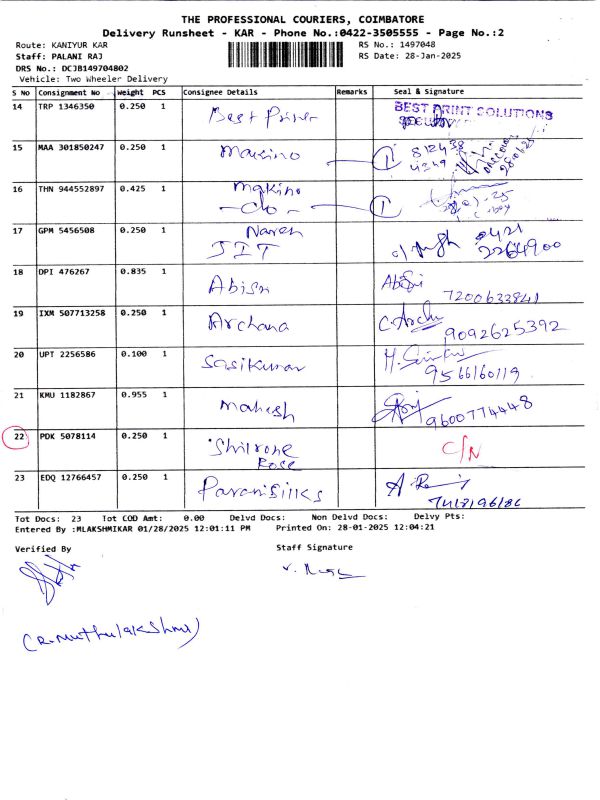 THE PROFESSIONAL COURIERS, COIMBATORE
Delivery Runsheet - KAR - Phone No.:0422-3505555 - Page No.:2
Route: KANIYUR KAR RS No.: 1497048
Staff: PALANI RAJ RS Date: 28-Jan-2025
DRS No.: DCJB149704802
Vehicle: Two Wheeler Delivery
S No Consignment No Weight PCS Consignee Details Remarks Seal & Signature
14 TRP 1346350 0.250 1 Best Printer BEST PRINT SOLUTIONS
15 MAA 301850247 0.250 1 Makino 1 812438
4349
16 THN 944552897 0.425 1 Makino
- c/o - 1
17 GPM 5456508 0.250 1 Naresh
JIT 0421
2264900
18 DPI 476267 0.835 1 Abisri Abisri
7200633841
19 IXM 507713258 0.250 1 Archana C. Archu
9092625392
20 UPT 2256586 0.100 1 Sasikumar
9566160119
21 KMU 1182867 0.955 1 Mahesh
9600774448
22 PDK 5078114 0.250 1 Shilrone
Rose C/N
23 EDQ 12766457 0.250 1 Paranisilks
7418196186
Tot Docs: 23 Tot COD Amt: 0.00 Delvd Docs: Non Delvd Docs: Delvy Pts:
Entered By :MLAKSHMIKAR 01/28/2025 12:01:11 PM Printed On: 28-01-2025 12:04:21
Verified By Staff Signature
(R. Muthulakshmi)